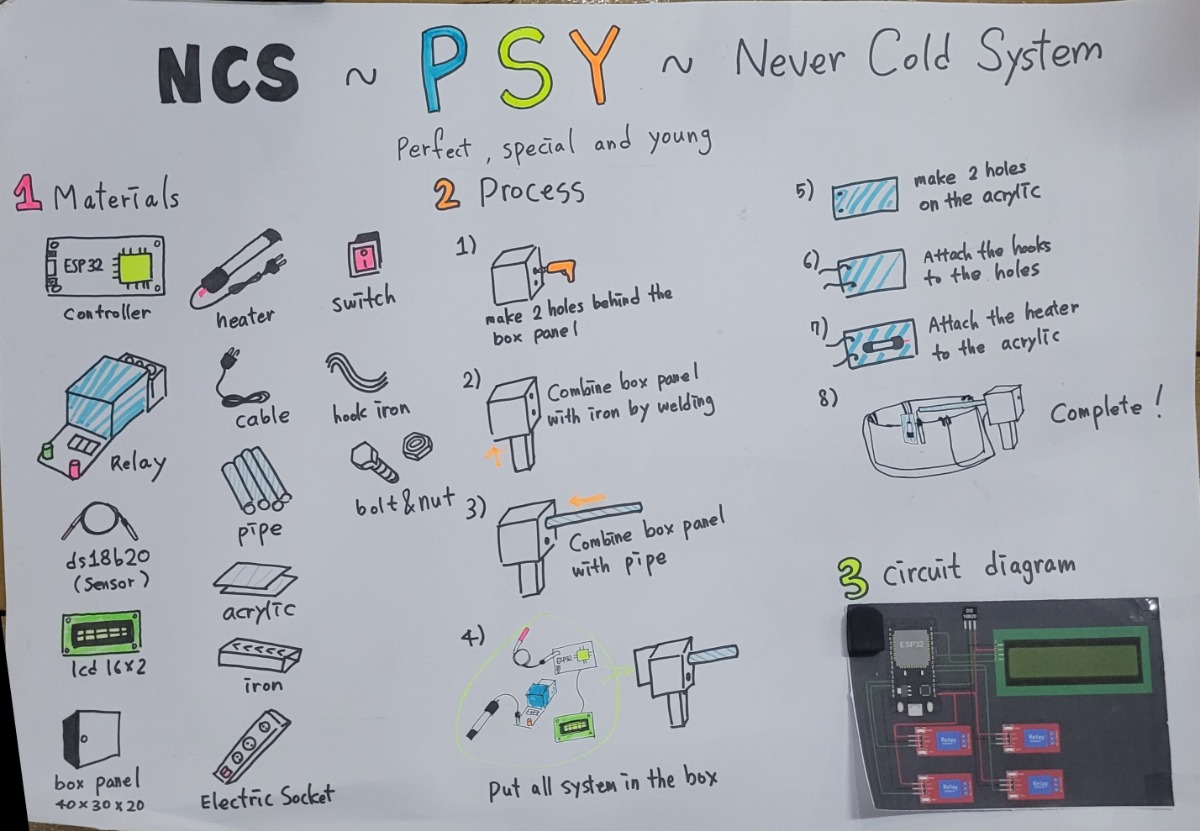 NCS ~ PSY ~ Never Cold System
Perfect, special and young
1 Materials
ESP32
controller
heater
switch
Relay
cable
hook iron
ds18b20
(Sensor)
pipe
bolt&nut
lcd 16x2
acrylic
iron
box panel
40x30x20
Electric Socket
2 Process
1)
make 2 holes behind the
box panel
2)
Combine box panel
with iron by welding
3)
Combine box panel
with pipe
4)
ESP32
Put all system in the box
5)
make 2 holes
on the acrylic
6)
Attach the hooks
to the holes
7)
Attach the heater
to the acrylic
8)
Complete!
3 Circuit diagram
ESP32
Relay
Relay
Relay
Relay